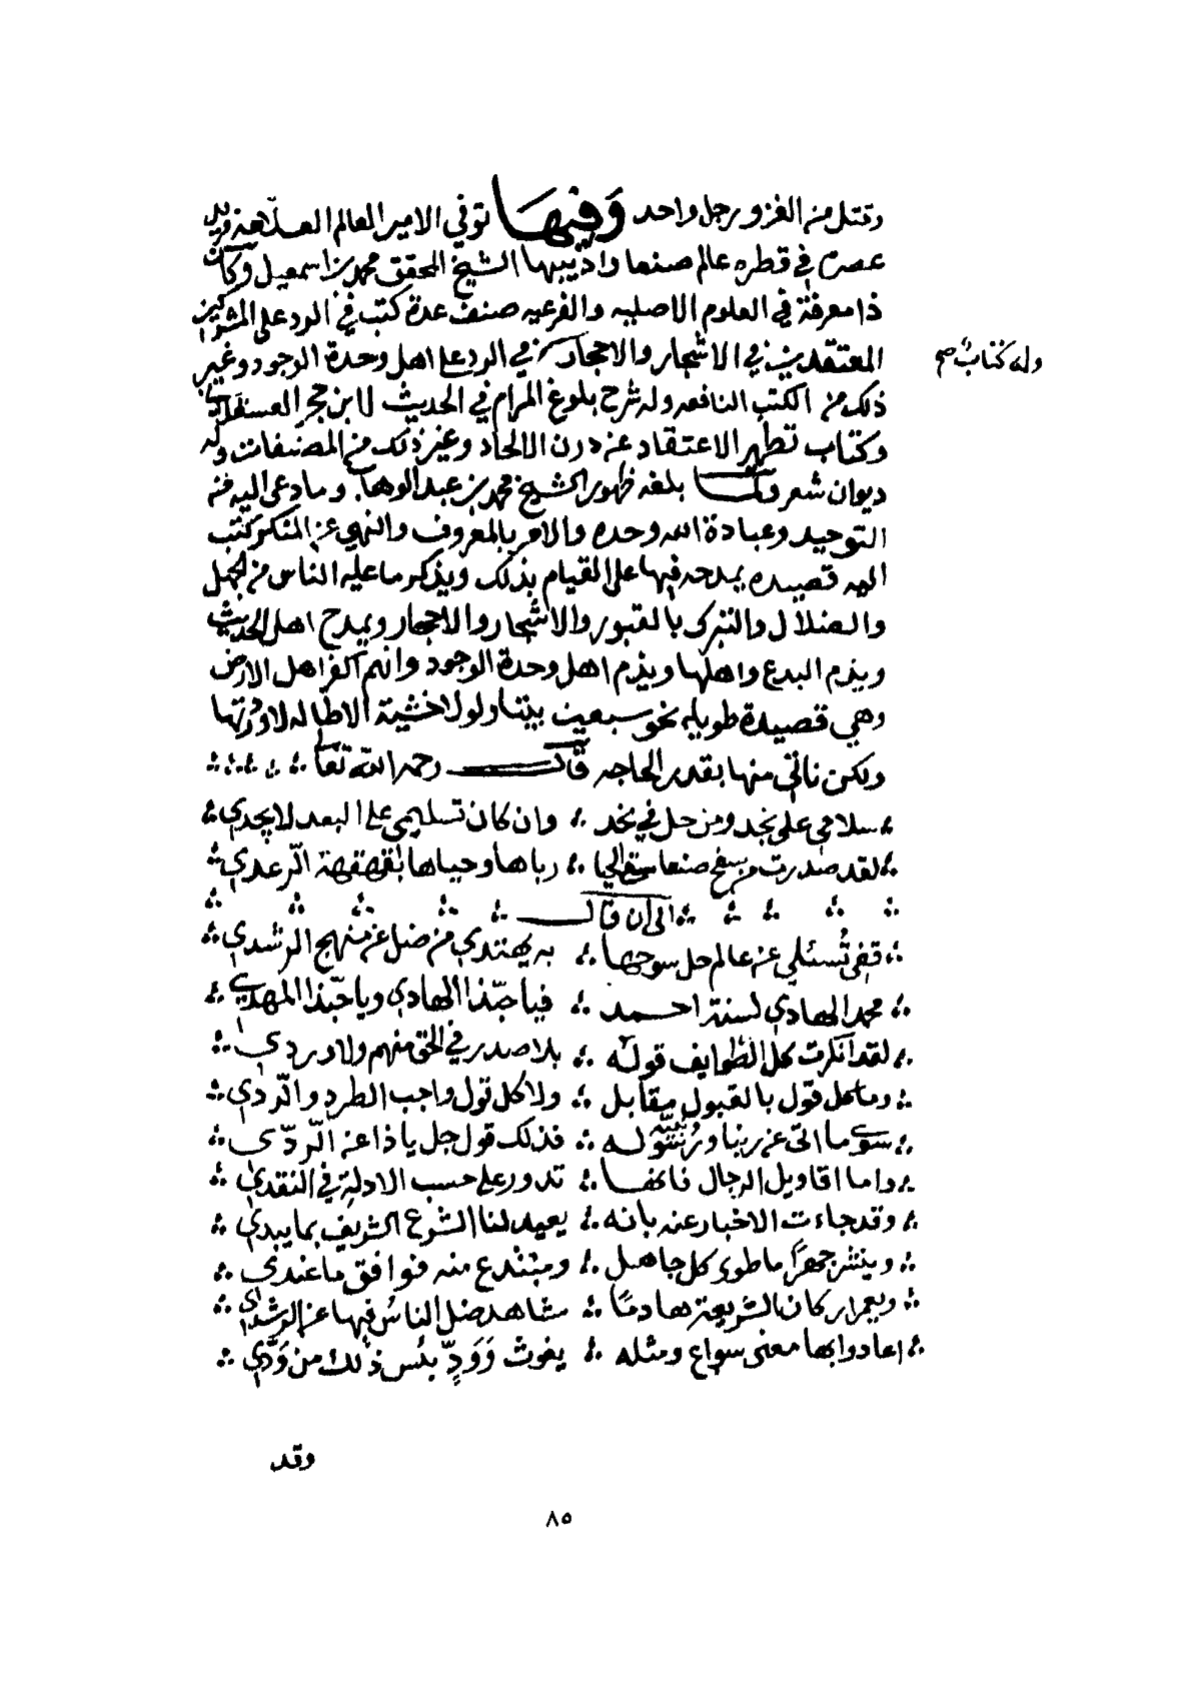 وقتل من الغزو رجل واحد وفيها توفي الامير العالم العلامة فريد
عصره في قطره عالم صنعا واديبها الشيخ المحقق محمد بن اسمعيل وكان
ذا معرفة في العلوم الاصليه والفرعيه صنف عدة كتب في الرد على المشركين
المعتقدين في الاشجار والاحجار في الرد على اهل وحدة الوجود وغير
وله كتاب صح
ذلك من الكتب النافعه وله شرح بلوغ المرام في الحديث لابن حجر العسقلاني
وكتاب تطهير الاعتقاد عن درن الالحاد وغير ذلك من المصنفات وله
ديوان شعر ولما بلغه ظهور الشيخ محمد بن عبد الوهاب وما دعى اليه من
التوحيد وعبادة الله وحده والامر بالمعروف والنهي عن المنكر كتب
اليه قصيده يمدحه فيها على القيام بذلك ويذكر ما عليه الناس من الجهل
والضلال والتبرك بالقبور والاشجار والاحجار ويمدح اهل الحديث
ويذم البدع واهلها ويذم اهل وحدة الوجود وانهم اكفر اهل الارض
وهي قصيدة طويله نحو سبعين بيتا ولولا خشية الاطاله لاوردتها
ولكن ناتي منها بقدر الحاجه قال رحمه الله تعا
سلامي على نجد ومن حل في نجد ∴ وان كان تسليمي على البعد لا يجدي
لقد صدرت من سفح صنعا سقى الحيا ∴ رباها وحياها بقهقهة الرعدي
الى ان قال
قفي تسئلي عن عالم حل سوحها ∴ به يهتدي من ضل عن منهج الرشدي
محمد الهادي لسنة احمد ∴ فيا حبذا الهادي ويا حبذا المهدي
لقد انكرت كل الطوايف قوله ∴ بلا صدر في الحق منهم ولا وردي
وما كل قول بالقبول مقابل ∴ ولا كل قول واجب الطرد والردي
سوى ما اتى عن ربنا ورسوله ∴ فذلك قول جل يا ذا عن الردي
واما اقاويل الرجال فانها ∴ تدور على حسب الادلة في النقدي
وقد جاءت الاخبار عنه بانه ∴ يعيد لنا الشرع الشريف بما يبدي
وينشر جهرا ما طوى كل جاهل ∴ ومبتدع منه فوافق ما عندي
ويعمر اركان الشريعة هادما ∴ مشاهد ضل الناس فيها عن الرشدي
اعادوا بها معنى سواع ومثله ∴ يغوث وَوَدٍّ بئس ذلك من وَدّي
وقد
٨٥